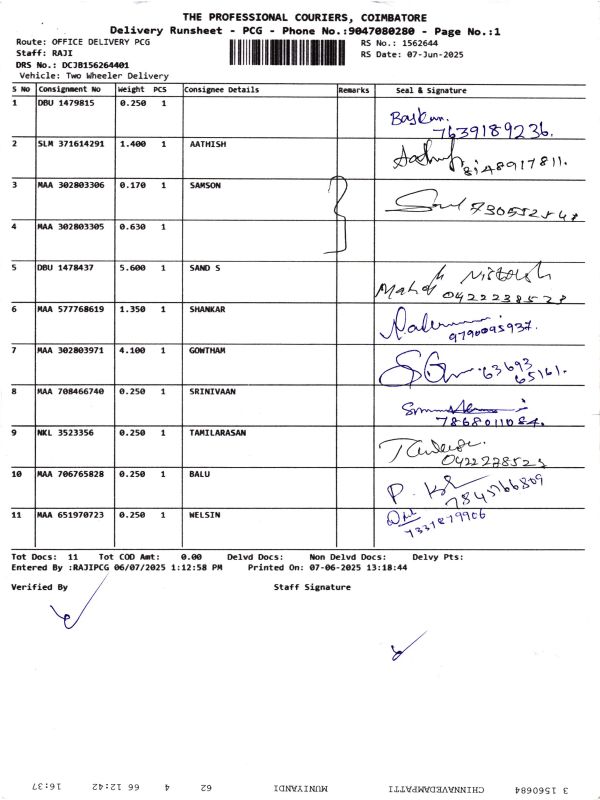 THE PROFESSIONAL COURIERS, COIMBATORE
Delivery Runsheet - PCG - Phone No.:9047080280 - Page No.:1
Route: OFFICE DELIVERY PCG
RS No.: 1562644
Staff: RAJI
RS Date: 07-Jun-2025
DRS No.: DCJB156264401
Vehicle: Two Wheeler Delivery
S No Consignment No Weight PCS Consignee Details Remarks Seal & Signature
1 DBU 1479815 0.250 1 Baskar. 7639189236.
2 SLM 371614291 1.400 1 AATHISH 8148917811.
3 MAA 302803306 0.170 1 SAMSON
4 MAA 302803305 0.630 1
5 DBU 1478437 5.600 1 SAND S
6 MAA 577768619 1.350 1 SHANKAR 9790095937.
7 MAA 302803971 4.100 1 GOWTHAM 63693 65161.
8 MAA 708466740 0.250 1 SRINIVAAN 7868011084.
9 NKL 3523356 0.250 1 TAMILARASAN
10 MAA 706765828 0.250 1 BALU
11 MAA 651970723 0.250 1 WELSIN
Tot Docs: 11 Tot COD Amt: 0.00 Delvd Docs: Non Delvd Docs: Delvy Pts:
Entered By :RAJIPCG 06/07/2025 1:12:58 PM Printed On: 07-06-2025 13:18:44
Verified By Staff Signature
3 1560684 CHINNAVEDAMPATTI MUNIYANDI 62 4 66 12:42 16:37